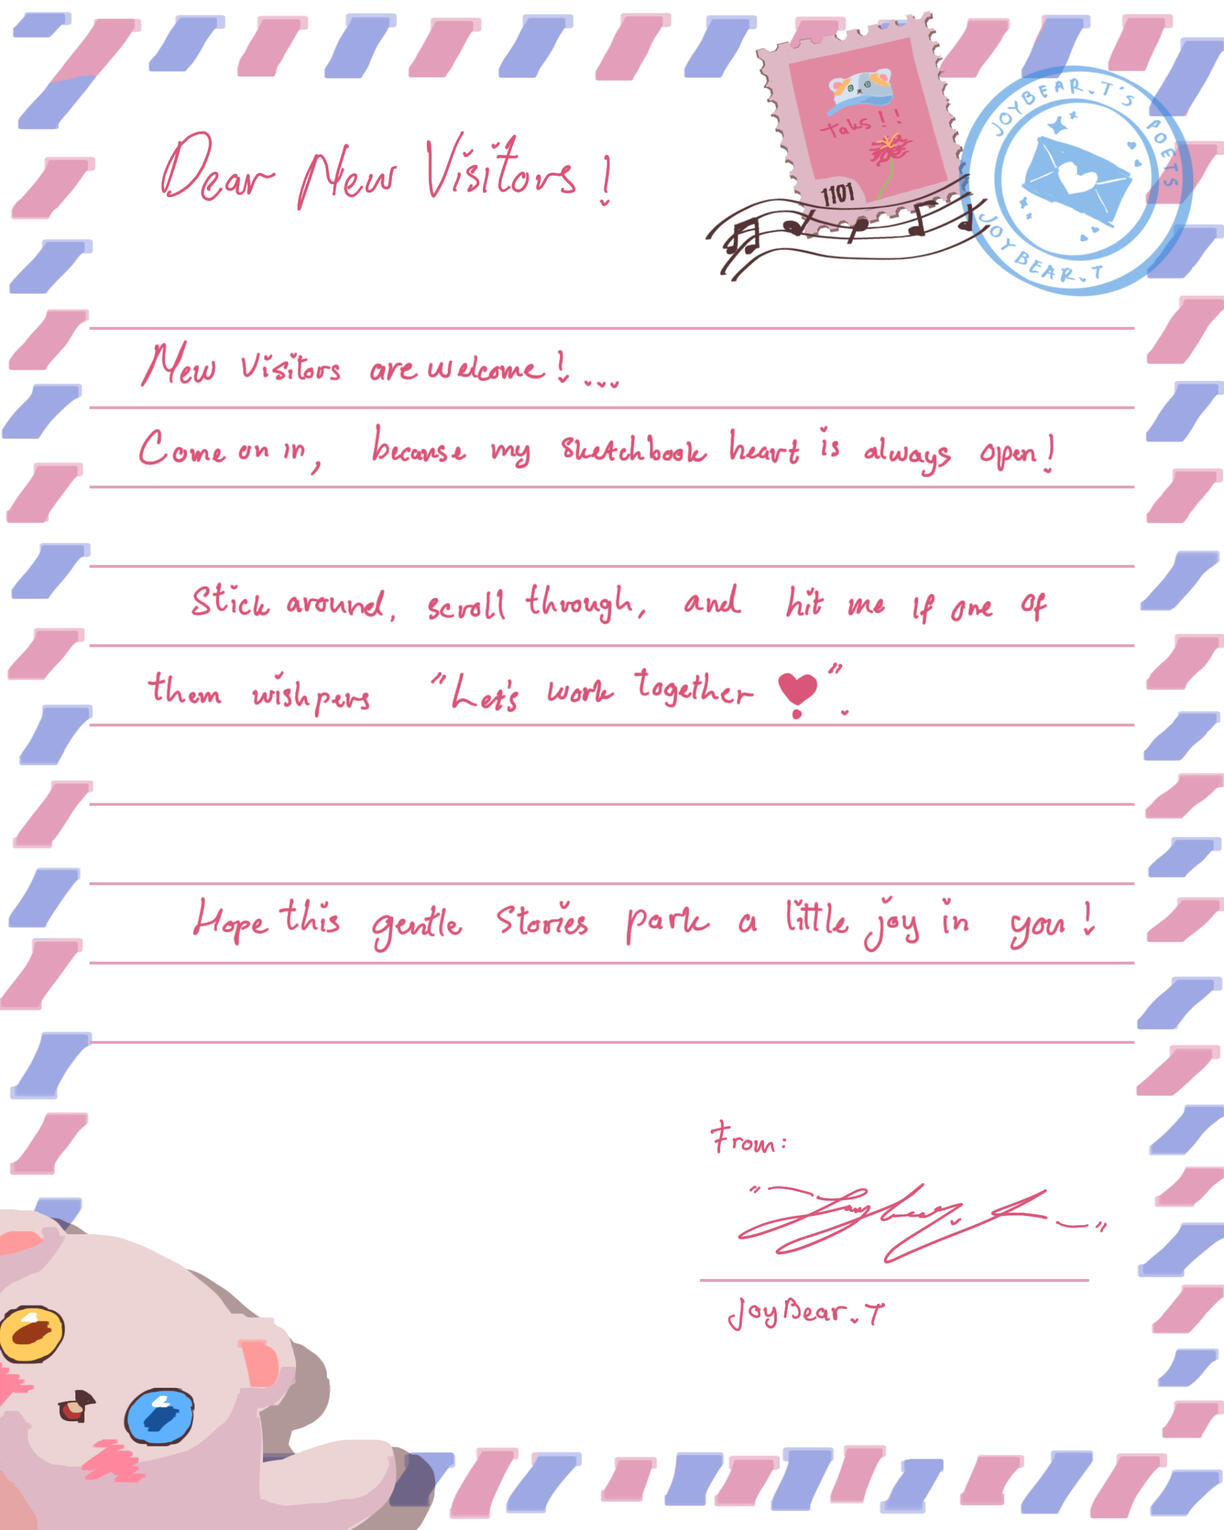 Dear New Visitors!
Taks!!
1101
JOYBEAR.T'S POETS
JOYBEAR.T
New Visitors are welcome!...
Come on in, because my sketchbook heart is always open!
Stick around, scroll through, and hit me if one of
them wishpers "Let's work together ❣".
Hope this gentle stories park a little joy in you!
From:
"Joybear.T"
JoyBear.T